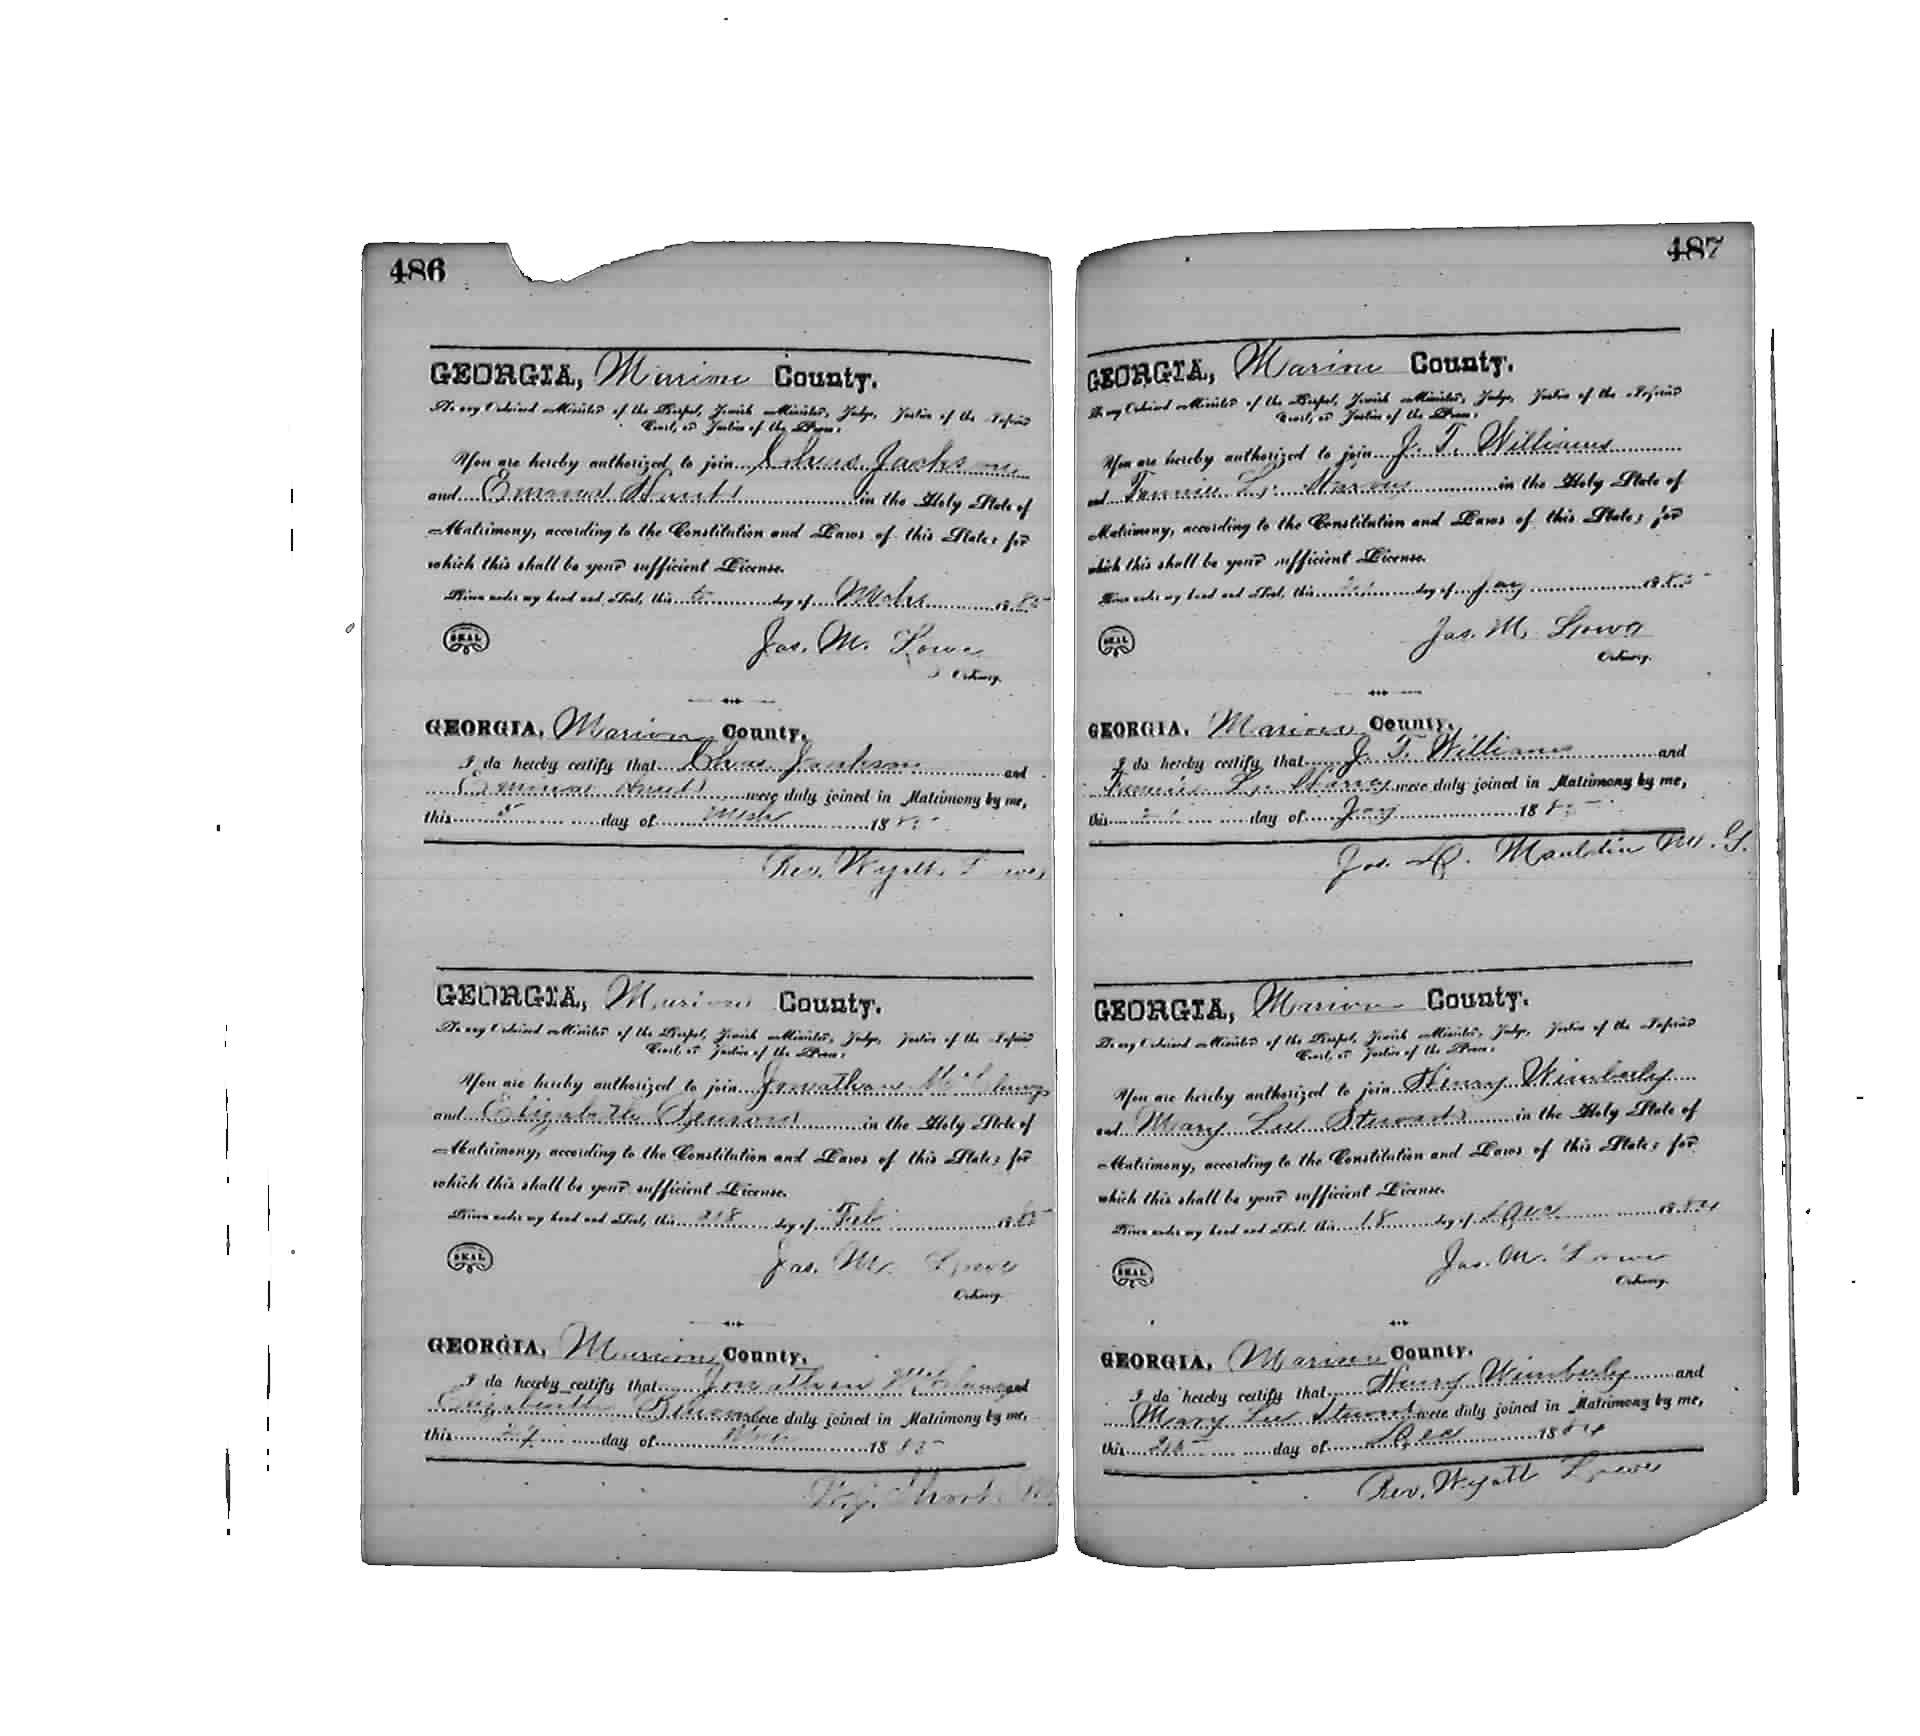 486
GEORGIA, Marion County.
To any Ordained Minister of the Gospel, Jewish Minister, Judge, Justice of the Inferior
Court, or Justice of the Peace:
You are hereby authorized to join Chas Jackson
and Emma in the Holy State of
Matrimony, according to the Constitution and Laws of this State; for
which this shall be your sufficient License.
Given under my hand and Seal, this 5 day of Mch 1885
SEAL
Jas. M. Lowe
Ordinary.
GEORGIA, Marion County.
I do hereby certify that Chas Jackson and
Emma were duly joined in Matrimony by me,
this 5 day of Mch 1885
Rev. Wyatt
GEORGIA, Marion County.
To any Ordained Minister of the Gospel, Jewish Minister, Judge, Justice of the Inferior
Court, or Justice of the Peace:
You are hereby authorized to join Jonathan
and Elizabeth in the Holy State of
Matrimony, according to the Constitution and Laws of this State; for
which this shall be your sufficient License.
Given under my hand and Seal, this day of Feb 1885
SEAL
Jas. M. Lowe
Ordinary.
GEORGIA, Marion County.
I do hereby certify that Jonathan and
Elizabeth were duly joined in Matrimony by me,
this day of 1885
487
GEORGIA, Marion County.
To any Ordained Minister of the Gospel, Jewish Minister, Judge, Justice of the Inferior
Court, or Justice of the Peace:
You are hereby authorized to join J. T. Williams
and Fannie L. in the Holy State of
Matrimony, according to the Constitution and Laws of this State; for
which this shall be your sufficient License.
Given under my hand and Seal, this day of Jany 1885
SEAL
Jas. M. Lowe
Ordinary.
GEORGIA, Marion County.
I do hereby certify that J. T. Williams and
Fannie L. were duly joined in Matrimony by me,
this day of Jany 1885
Jas. D. Mauldin M. G.
GEORGIA, Marion County.
To any Ordained Minister of the Gospel, Jewish Minister, Judge, Justice of the Inferior
Court, or Justice of the Peace:
You are hereby authorized to join Henry Wimberly
and Mary Lee Steward in the Holy State of
Matrimony, according to the Constitution and Laws of this State; for
which this shall be your sufficient License.
Given under my hand and Seal, this 18 day of Dec 1884
SEAL
Jas. M. Lowe
Ordinary.
GEORGIA, Marion County.
I do hereby certify that Henry Wimberly and
Mary Lee Steward were duly joined in Matrimony by me,
this 25 day of Dec 1884
Rev. Wyatt Lowe